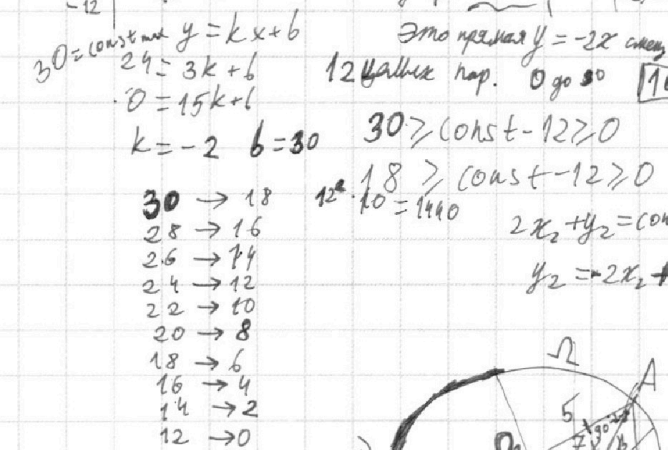 -12
30 = const max y = kx + b
24 = 3k + b
0 = 15k + b
k = -2 b = 30
30 → 18
28 → 16
26 → 14
24 → 12
22 → 10
20 → 8
18 → 6
16 → 4
14 → 2
12 → 0
Это прямая y = -2x смещ
12 целых пар. 0 до 30
30 ≥ const - 12 ≥ 0
18 ≥ const - 12 ≥ 0
12² · 10 = 1440
2x₂ + y₂ = con
y₂ = -2x₂ +
Ω
A
5
7
90